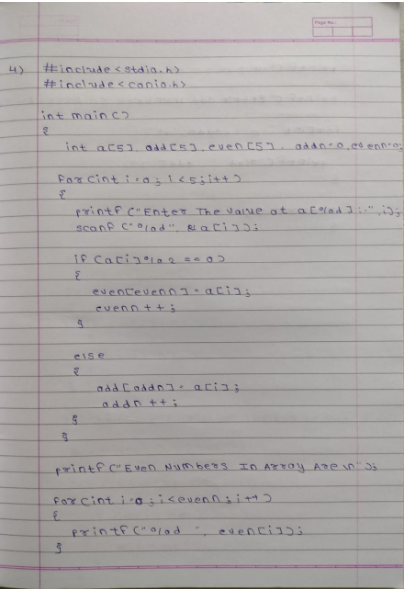 Page No.:
4) #include <stdio.h>
#include <conio.h>
int main()
{
int a[5], odd[5], even[5], oddn=0, evenn=0;
for(int i=0; i<5; i++)
{
printf("Enter The Value at a[%d]:-", i);
scanf("%d", &a[i]);
if (a[i]%2 == 0)
{
even[evenn] = a[i];
evenn++;
}
else
{
odd[oddn] = a[i];
oddn++;
}
}
printf("Even Numbers In Array Are \n");
for(int i=0; i<evenn; i++)
{
printf("%d ", even[i]);
}